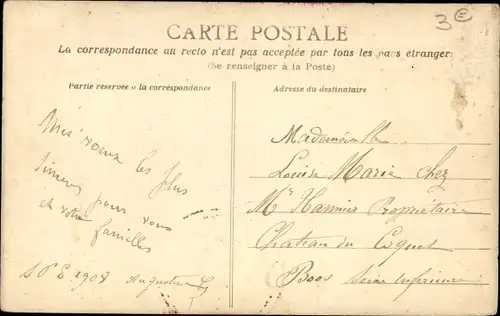 3€
CARTE POSTALE
La correspondance au recto n'est pas acceptée par tous les pays étrangers
(Se renseigner à la Poste)
Partie réservée a la correspondance
Adresse du destinataire
Mes voeux les plus
sincers pour vous
et votre
familles
1908 Augustine
Mademoiselle
Louise Marie chez
Mr Propriétaire
Chateau du Coquet
Boos Seine Inferieure